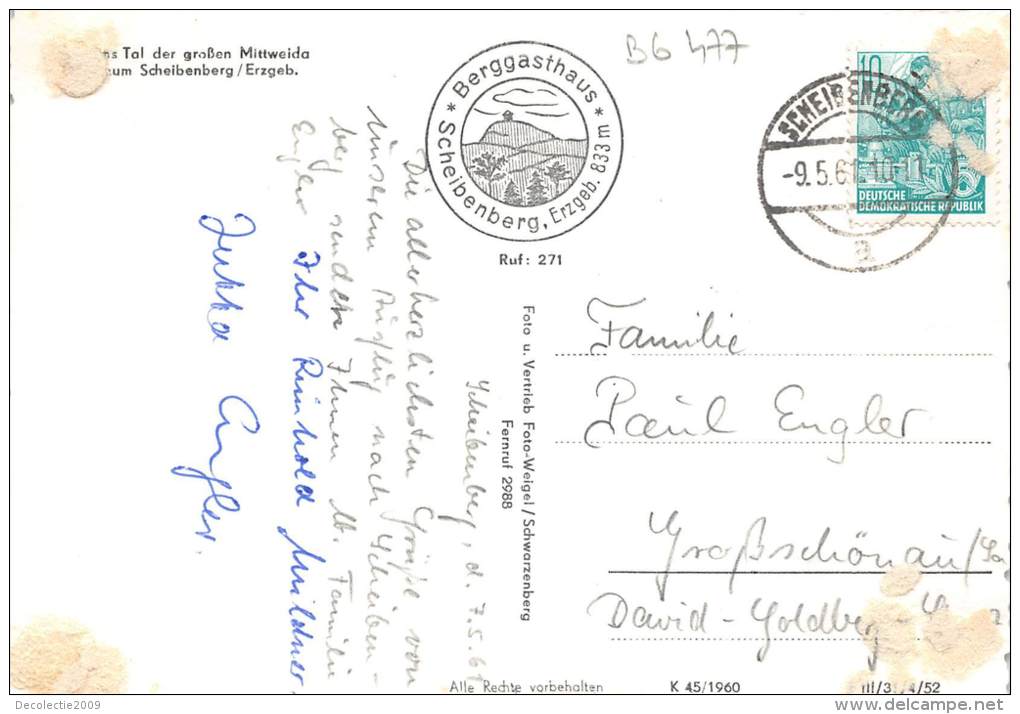 ns Tal der großen Mittweida
zum Scheibenberg/Erzgeb.
B6 477
* Berggasthaus *
Scheibenberg, Erzgeb. 833 m
Ruf: 271
10
DEUTSCHE
DEMOKRATISCHE REPUBLIK
SCHEIBENBERG
-9.5.61.10-11
a
Scheibenberg, d. 7.5.61
Die allerherzlichsten Grüße von
unserem Ausflug nach Scheiben-
berg senden Ihnen u. Familie
Engler Ihr Reinhold Mildner,
Jutta Engler.
Foto u. Vertrieb Foto-Weigel/Schwarzenberg
Fernruf 2988
Familie
Paul Engler
Großschönau/Sa
David-Goldberg-
Alle Rechte vorbehalten
K 45/1960
III/3 /4/52
Decolectie2009
www.delcampe.net